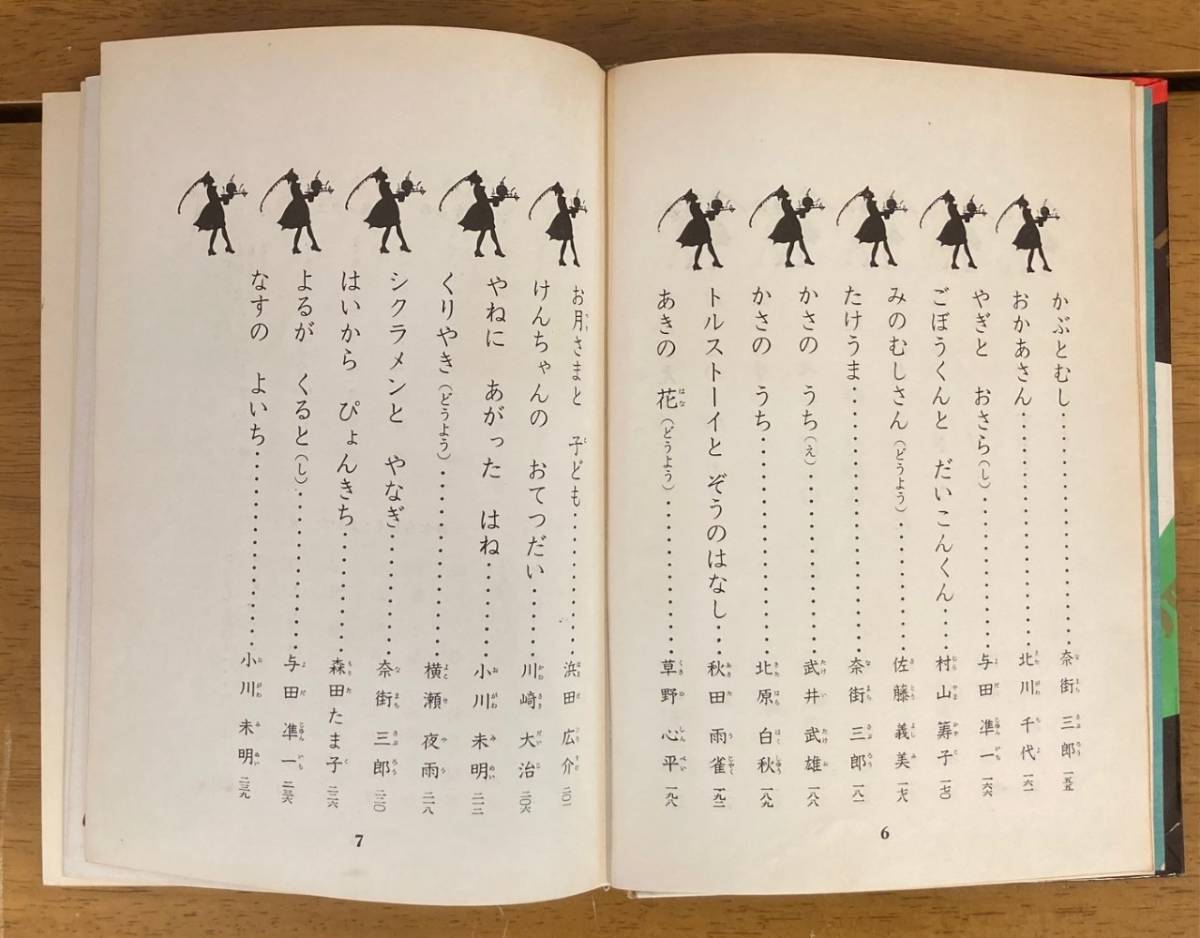 かぶとむし……………奈街三郎 一五五
おかあさん……………北川千代 一六一
やぎと おさら(し)……………与田凖一 一六六
ごぼうくんと だいこんくん……村山籌子 一七〇
みのむしさん(どうよう)……………佐藤義美 一七八
たけうま……………奈街三郎 一八一
かさの うち(え)……………武井武雄 一八八
かさの うち……………北原白秋 一八九
トルストーイと ぞうのはなし……秋田雨雀 一九二
あきの 花(どうよう)……………草野心平 一九八
6
お月さまと 子ども……………浜田広介 二〇一
けんちゃんの おてつだい……川崎大治 二〇六
やねに あがった はね……小川未明 二一二
くりやき(どうよう)……………横瀬夜雨 二一八
シクラメンと やなぎ……………奈街三郎 二二〇
はいから ぴょんきち……………森田たま子 二二六
よるが くると(し)……………与田凖一 二三六
なすの よいち……………小川未明 二三九
7